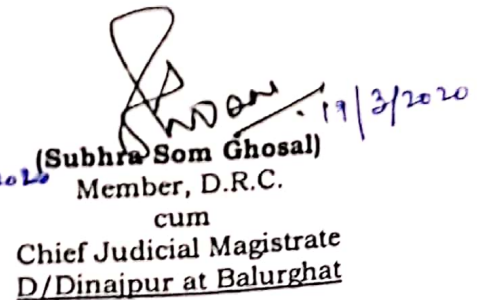 19/3/2020
(Subhra Som Ghosal)
Member, D.R.C.
cum
Chief Judicial Magistrate
D/Dinajpur at Balurghat